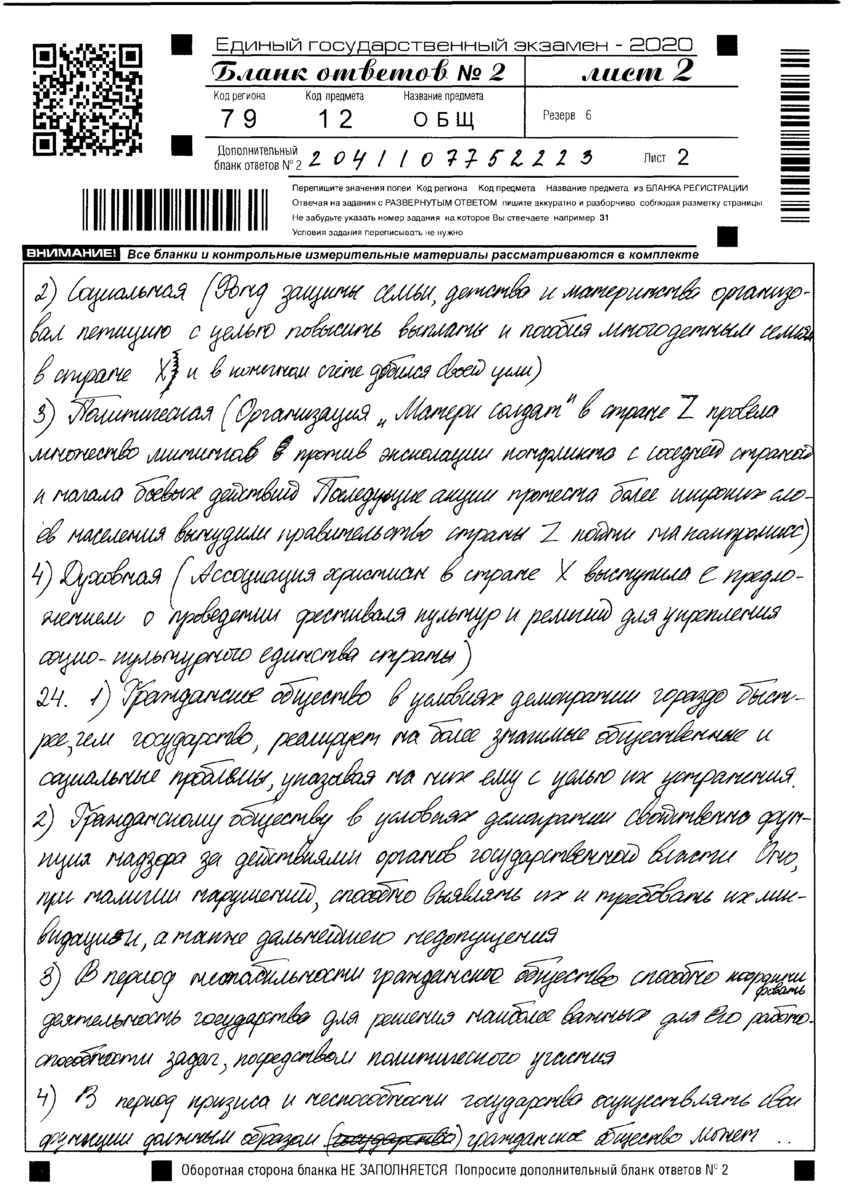 Единый государственный экзамен - 2020
Бланк ответов № 2 лист 2
Код региона Код предмета Название предмета
79 12 ОБЩ Резерв 6
Дополнительный
бланк ответов № 2 2041107752223 Лист 2
Перепишите значения полеи Код региона Код предмета Название предмета из БЛАНКА РЕГИСТРАЦИИ
Отвечая на задания с РАЗВЕРНУТЫМ ОТВЕТОМ пишите аккуратно и разборчиво соблюдая разметку страницы
Не забудьте указать номер задания на которое Вы отвечаете например 31
Условия задания переписывать не нужно
ВНИМАНИЕ! Все бланки и контрольные измерительные материалы рассматриваются в комплекте
2) Социальная (Фонд защиты семьи, детства и материнства организо-
вал петицию с целью повысить выплаты и пособия многодетным семьям
в стране X и в конечном счёте добился своей цели)
3) Политическая (Организация „Матери солдат" в стране Z провела
множество митингов против эскалации конфликта с соседней страной
и начала боевых действий Последующие акции протеста более широких сло-
ёв населения вынудили правительство страны Z пойти на компромисс)
4) Духовная (Ассоциация христиан в стране X выступила с предло-
жением о проведении фестиваля культур и религий для укрепления
социо-культурного единства страны)
24. 1) Гражданское общество в условиях демократии гораздо быст-
рее, чем государство, реагирует на более значимые общественные и
социальные проблемы, указывая на них ему с целью их устранения.
2) Гражданскому обществу в условиях демократии свойственна фун-
кция надзора за действиями органов государственной власти Оно,
при наличии нарушений, способно выявлять их и требовать их лик-
видации, а также дальнейшего недопущения
3) В период нестабильности гражданское общество способно координи
ровать
деятельность государства для решения наиболее важных для его работо-
способности задач, посредством политического участия
4) В период кризиса и неспособности государства осуществлять свои
функции должным образом (государство) гражданское общество может ...
Оборотная сторона бланка НЕ ЗАПОЛНЯЕТСЯ Попросите дополнительный бланк ответов № 2